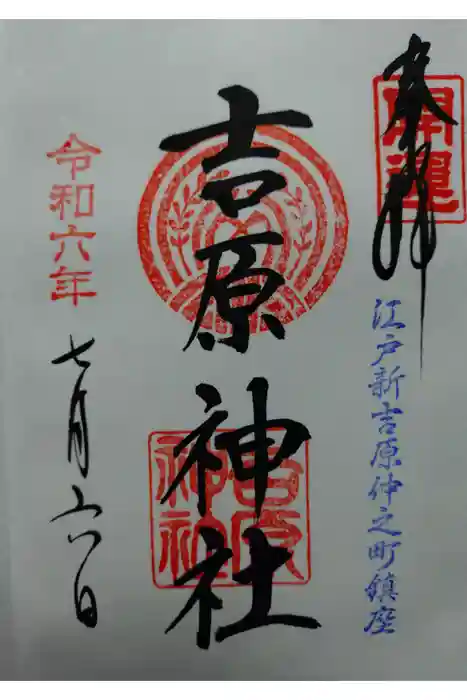 奉拝
開運
江戸新吉原仲之町鎮座
吉原神社
吉原神社
令和六年
七月六日